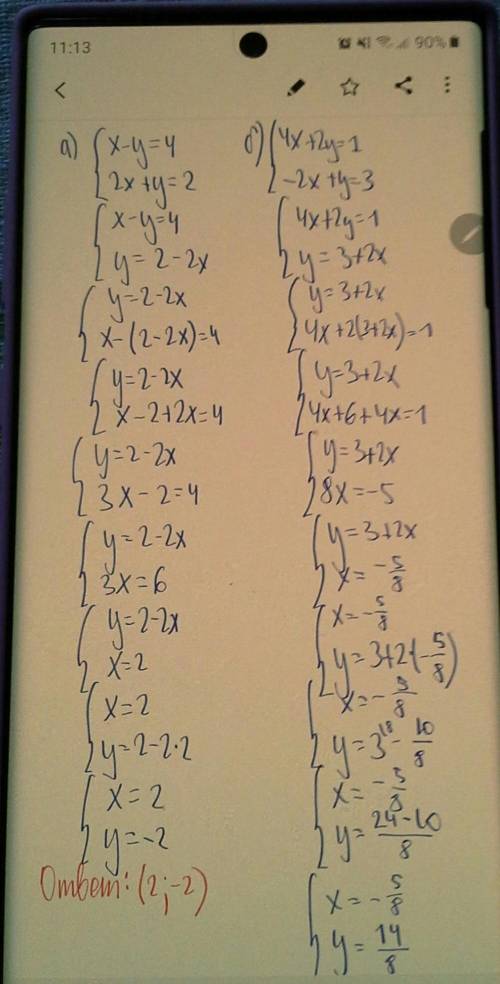 11:13 90%
а) { x-y=4
2x+y=2
{ x-y=4
y=2-2x
{ y=2-2x
x-(2-2x)=4
{ y=2-2x
x-2+2x=4
{ y=2-2x
3x-2=4
{ y=2-2x
3x=6
{ y=2-2x
x=2
{ x=2
y=2-2·2
{ x=2
y=-2
Ответ: (2;-2)
б) { 4x+2y=1
-2x+y=3
{ 4x+2y=1
y=3+2x
{ y=3+2x
4x+2(3+2x)=1
{ y=3+2x
4x+6+4x=1
{ y=3+2x
8x=-5
{ y=3+2x
x=-5/8
{ x=-5/8
y=3+2·(-5/8)
{ x=-5/8
y=3^{18}-10/8
{ x=-5/8
y=24-10/8
{ x=-5/8
y=14/8